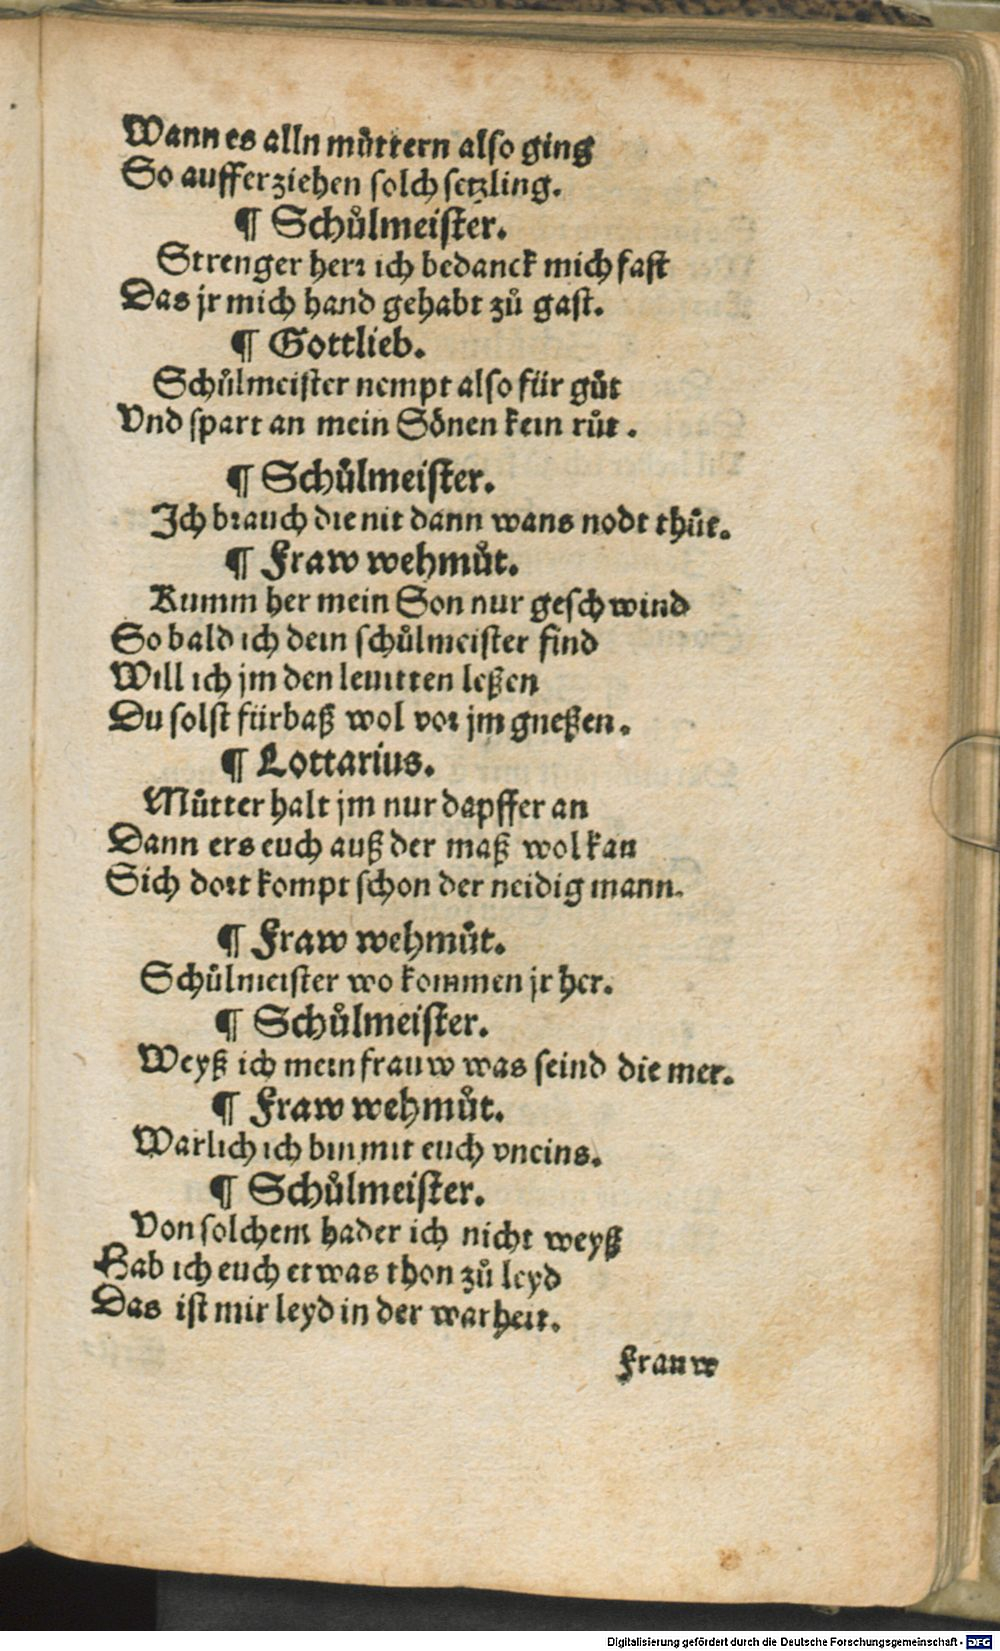 Wann es alln můttern also ging
So aufferziehen solch setzling.
¶ Schůlmeister.
Strenger herr ich bedanck mich fast
Das jr mich hand gehabt zů gast.
¶ Gottlieb.
Schůlmeister nempt also für gůt
Vnd spart an mein Sönen kein růt.
¶ Schůlmeister.
Ich brauch die nit dann wans nodt thůt.
¶ Fraw wehmůt.
Kumm her mein Son nur geschwind
So bald ich dein schůlmeister find
Will ich jm den leuitten leßen
Du solst fürbaß wol vor jm gneßen.
¶ Lottarius.
Můtter halt jm nur dapffer an
Dann ers euch auß der maß wol kan
Sich dort kompt schon der neidig mann.
¶ Fraw wehmůt.
Schůlmeister wo kommen jr her.
¶ Schůlmeister.
Weyß ich mein frauw was seind die mer.
¶ Fraw wehmůt.
Warlich ich bin mit euch vneins.
¶ Schůlmeister.
Von solchem hader ich nicht weyß
Hab ich euch etwas thon zů leyd
Das ist mir leyd in der warheit.
Frauw
Digitalisierung gefördert durch die Deutsche Forschungsgemeinschaft - DFG